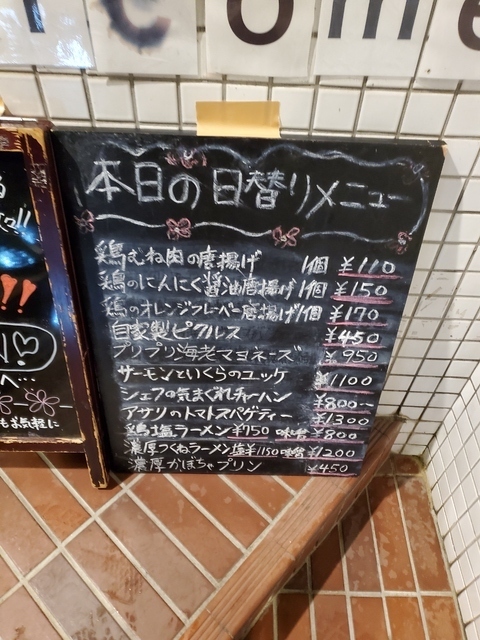 come
本日の日替りメニュー
鶏むね肉の唐揚げ 1個 ¥110
鶏のにんにく醤油唐揚げ 1個 ¥150
鶏のオレンジフレーバー唐揚げ 1個 ¥170
自家製ピクルス ¥450
プリプリ海老マヨネーズ ¥950
サーモンといくらのユッケ ¥1100
シェフの気まぐれチャーハン ¥800-
アサリのトマトスパゲティー ¥1300
鶏塩ラーメン¥750 味噌¥800
濃厚つくねラーメン 塩¥1150 味噌¥1200
濃厚かぼちゃプリン ¥450
!!
へ…
もお気軽に